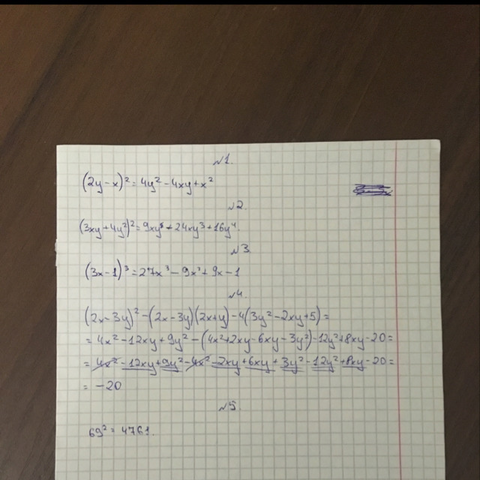 №1.
(2y-x)² = 4y² - 4xy + x²
№2.
(3xy+4y²)² = 9xy² + 24xy³ + 16y⁴
№3.
(3x-1)³ = 27x³ - 9x² + 9x - 1
№4.
(2x-3y)² - (2x-3y)(2x+y) - 4(3y²-2xy+5) =
= 4x² - 12xy + 9y² - (4x²+2xy-6xy-3y²) - 12y² + 8xy - 20 =
= 4x² - 12xy + 9y² - 4x² - 2xy + 6xy + 3y² - 12y² + 8xy - 20 =
= -20
№5.
69² = 4761.